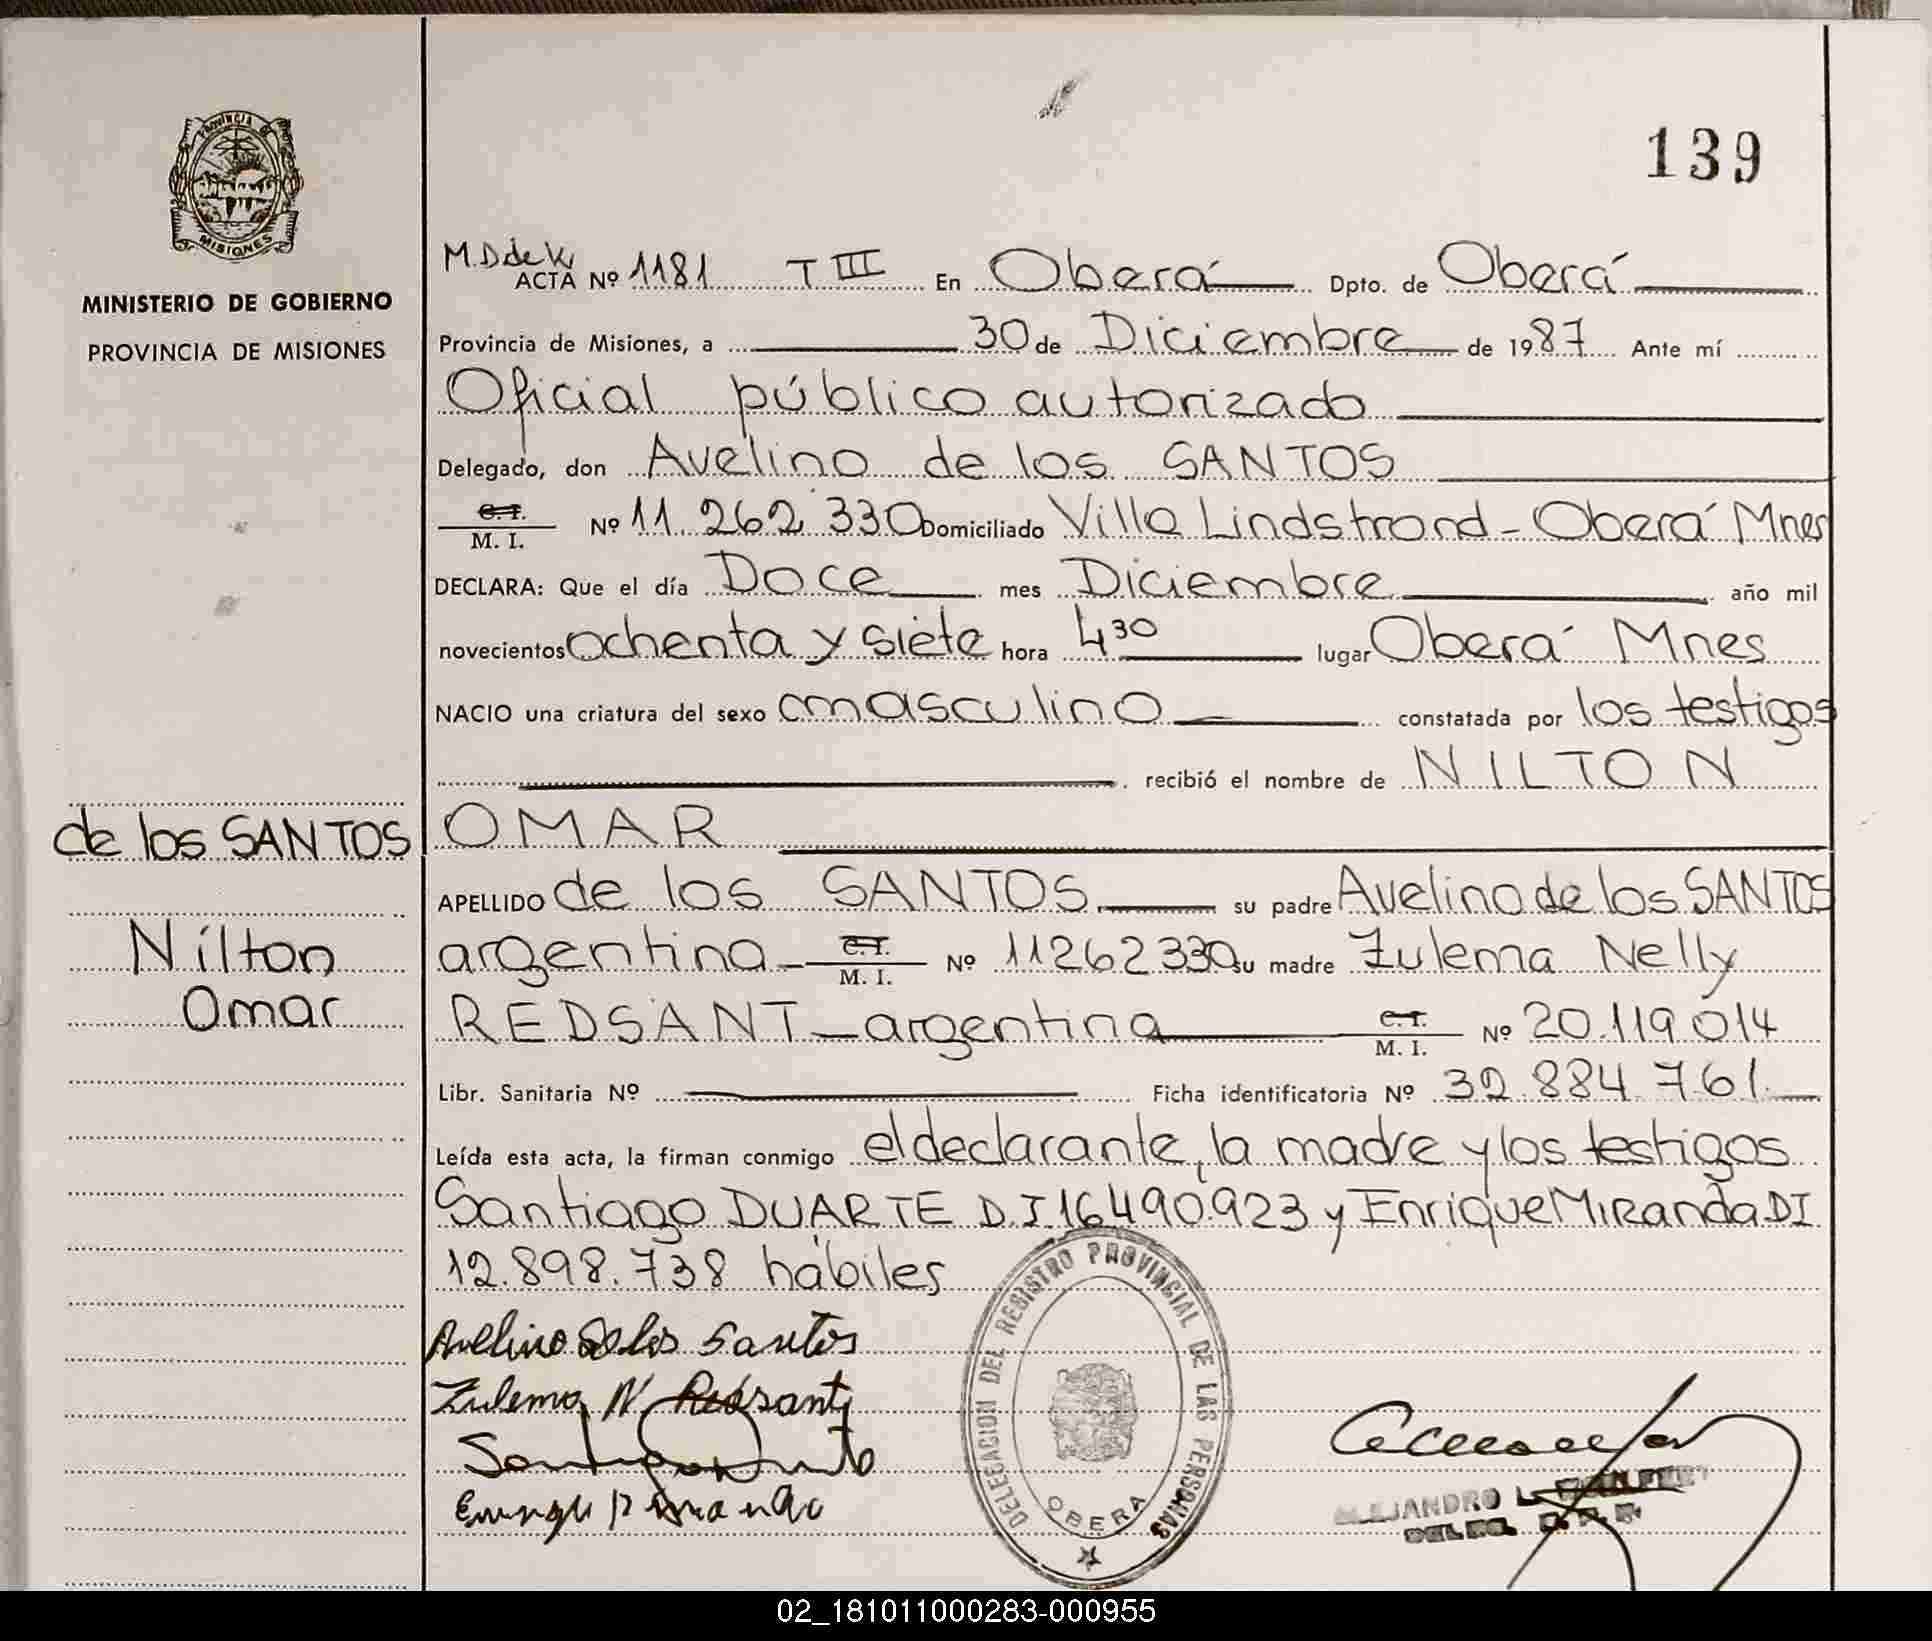 PROVINCIA DE
MISIONES
MINISTERIO DE GOBIERNO
PROVINCIA DE MISIONES
139
M.D de K
ACTA Nº 1181 T III En Oberá Dpto. de Oberá
Provincia de Misiones, a 30 de Diciembre de 1987 Ante mí
Oficial público autorizado
Delegado, don Avelino de los SANTOS
C.I.
M. I. Nº 11.262.330 Domiciliado Villa Lindstrond - Oberá Mnes
DECLARA: Que el día Doce mes Diciembre año mil
novecientos ochenta y siete hora 4 30 lugar Oberá Mnes
NACIO una criatura del sexo masculino constatada por los testigos
recibió el nombre de NILTON
OMAR
de los SANTOS
Nilton
Omar
APELLIDO de los SANTOS su padre Avelino de los SANTOS
argentina - C.I. M. I. Nº 11262330 su madre Zulema Nelly
REDSANT - argentina C.I. M. I. Nº 20.119.014
Libr. Sanitaria Nº Ficha identificatoria Nº 32.884.761.
Leída esta acta, la firman conmigo el declarante, la madre y los testigos
Santiago DUARTE D.I 16.490.923 y Enrique MIRanda DI
12.898.738 hábiles
Avelino de los Santos
Zulema N Redsant
DELEGACION DEL REGISTRO PROVINCIAL DE LAS PERSONAS
OBERA
ALEJANDRO L.
02_181011000283-000955